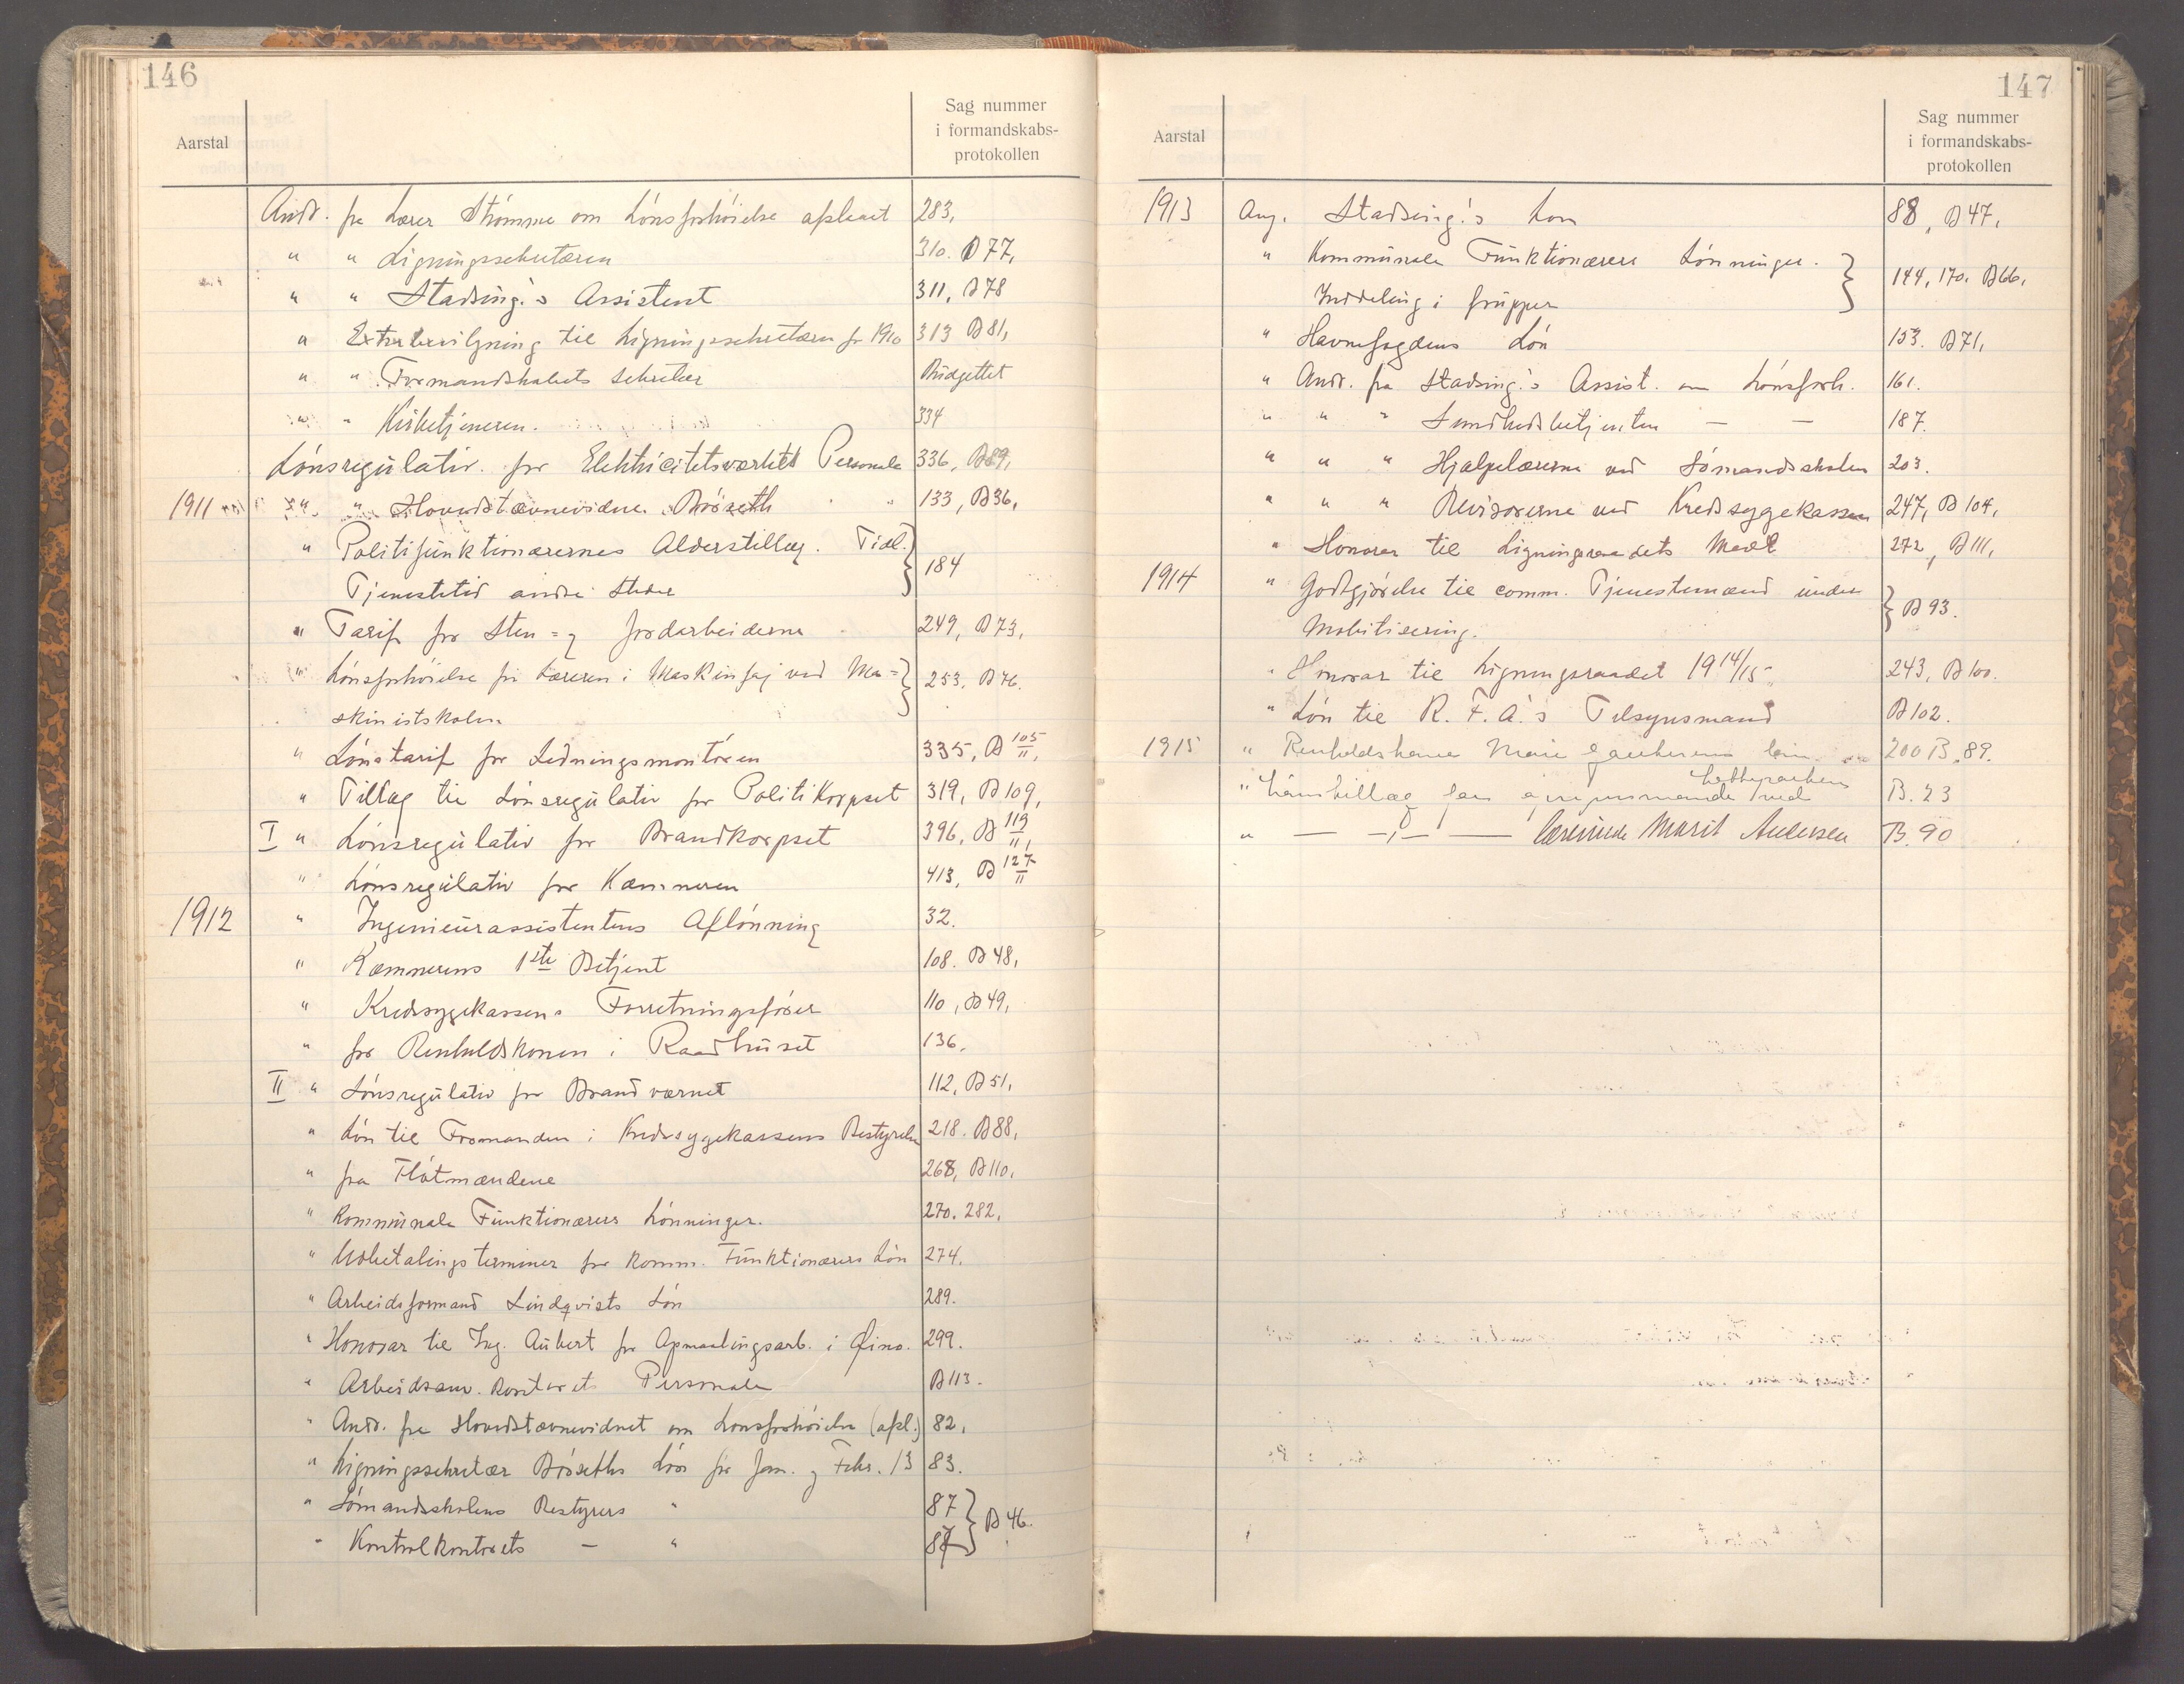 146
Aarstal
Sag nummer
i formandskabs-
protokollen
Andr. fra Lærer Strømme om Lønsforhøielse afslaaet 283,
" " Ligningssekretæren 310. B 77,
" " Stadsing.'s Assistent 311, B 78
" Extrabevilgning til Ligningssekretæren for 1910 313 B 81,
" " Formandskabets Sekretær Budgettet
" " Kirketjeneren. 334
Lønsregulativ for Elektricitetsværkets Personale 336, B 89,
1911 " " Hovedstævnevidne Brøseth 133, B 36,
" Politifunktionærernes Alderstillæg. Tidl. } 184
Tjenestetid andre Steder
" Tarif for Sten= og Jordarbeiderne 249, B 73,
" Lønsforhøielse for Læreren i Maskinfag ved Ma= } 253, B 76.
skinistskolen
" Lønstarif for Ledningsmontøren 335, B 105/II,
" Tillæg til Lønsregulativ for Politikorpset 319, B 109,
I " Lønsregulativ for Brandkorpset 396, B 119/II,
" Lønsregulativ for Kæmneren 413, B 127/II
1912 " Ingeniørassistentens Aflønning 32.
" Kæmnerens 1ste Betjent 108. B 48,
" Kredssygekassens Forretningsfører 110, B 49,
" for Renholdskonen i Raadhuset 136.
II " Lønsregulativ for Brandværnet 112, B 51,
" Løn til Formanden i Kredssygekassens Bestyrelse 218. B 88,
" fra Flåtmændene 268, B 110.
" Kommunale Funktionærers Lønninger. 270. 282.
" Udbetalingsterminer for komm. Funktionærers Løn 274.
" Arbeidsformand Lindqvists Løn 289.
" Honorar til Ing. Aubert for Opmaalingsarb. i 299.
" Arbeidsanv. kontorets Personale B 113.
" Andr. fra Hovedstævnevidnet om Lønsforhøielse (afsl.) 82.
" Ligningssekretær Brøseths Løn for Jan. og Febr. 13 83.
" Sømandsskolens Bestyrers " 87 } B 46.
" Kontrolkontorets — " 87
147
Aarstal
Sag nummer
i formandskabs-
protokollen
1913 Ang. Stadsing.'s Løn 88, B 47,
" Kommunale Funktionærers Lønninger. } 144, 170. B 66,
Inddeling i Grupper
" Havnefogdens Løn 153. B 71,
" Andr. fra Stadsing.'s Assist. om Lønsforh. 161.
" " " Sundhedsbetjenten — — 187.
" " " Hjælpelærerne ved Sømandsskolen 203.
" " " Revisorerne ved Kredssygekassen 247, B 104,
" Honorar til Ligningsraadets Medl. 272, B 111,
1914 " Godtgjørelse til comm. Tjenestemænd under } B 93.
Mobilisering.
" Honorar til Ligningsraadet 1914/15. 243, B 100.
" Løn til R. F. A.'s Tilsynsmand B 102.
1915 " Renholdskone Marie løn 200 B. 89.
" Lønstillæg for ved B. 23
" — — " — — Lærerinde Marit Andersen B. 90